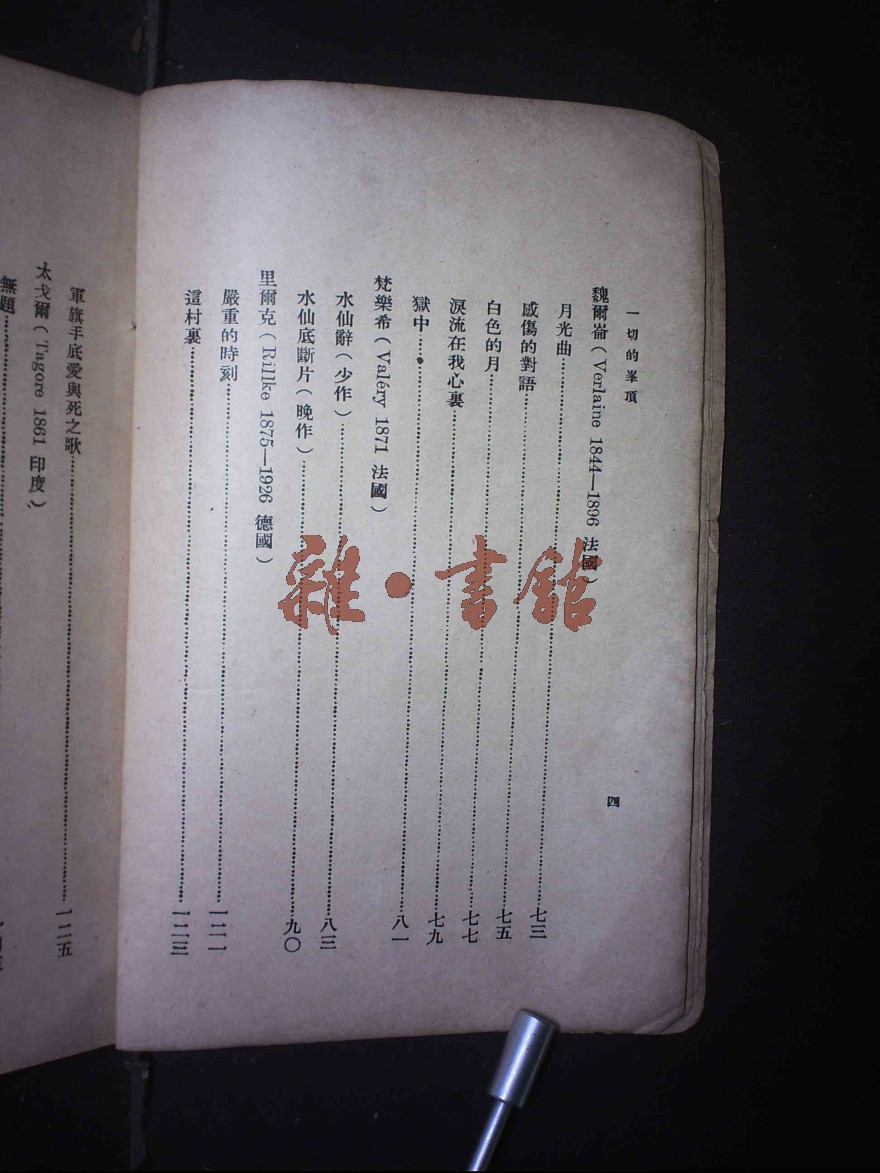 一切的峯頂
四
魏爾崙（Verlaine 1844—1896 法國）
月光曲……七三
感傷的對語……七五
白色的月……七七
淚流在我心裏……七九
獄中……八一
梵樂希（Valéry 1871 法國）
水仙辭（少作）……八三
水仙底斷片（晚作）……九〇
里爾克（Rillke 1875—1926 德國）
嚴重的時刻……一二一
這村裏……一二三
軍旗手底愛與死之歌……一二五
太戈爾（Tagore 1861 印度）
無題……
雜·書館